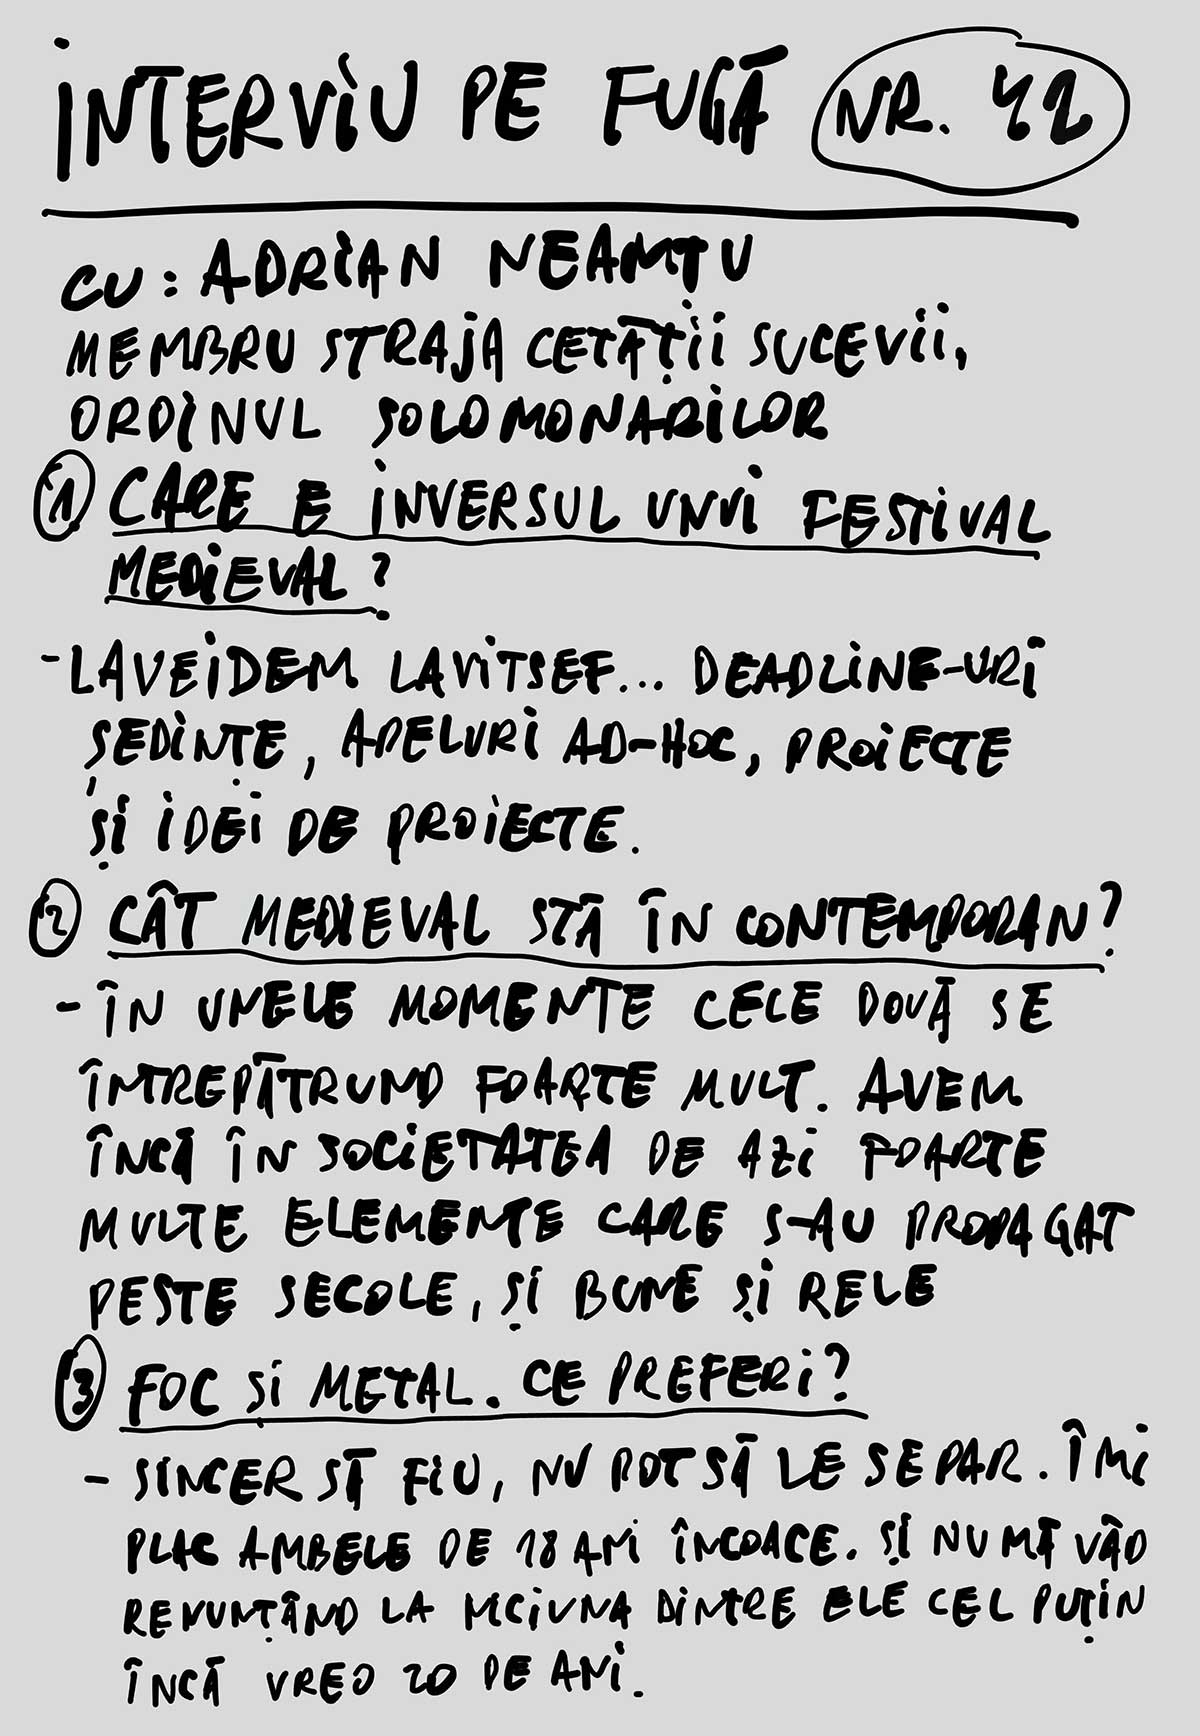 INTERVIU PE FUGĂ NR. 42
CU: ADRIAN NEAMȚU
MEMBRU STRAJA CETĂȚII SUCEVII,
ORDINUL SOLOMONARILOR
1 CARE E INVERSUL UNUI FESTIVAL
MEDIEVAL?
- LAVEIDEM LAVITSEF... DEADLINE-URI
ȘEDINȚE, APELURI AD-HOC, PROIECTE
ȘI IDEI DE PROIECTE.
2 CÂT MEDIEVAL STĂ ÎN CONTEMPORAN?
- ÎN UNELE MOMENTE CELE DOUĂ SE
ÎNTREPĂTRUND FOARTE MULT. AVEM
ÎNCĂ ÎN SOCIETATEA DE AZI FOARTE
MULTE ELEMENTE CARE S-AU PROPAGAT
PESTE SECOLE, ȘI BUNE ȘI RELE
3 FOC ȘI METAL. CE PREFERI?
- SINCER SĂ FIU, NU POT SĂ LE SEPAR. ÎMI
PLAC AMBELE DE 18 ANI ÎNCOACE. ȘI NU MĂ VĂD
RENUNȚÂND LA NICIUNA DINTRE ELE CEL PUȚIN
ÎNCĂ VREO 20 DE ANI.